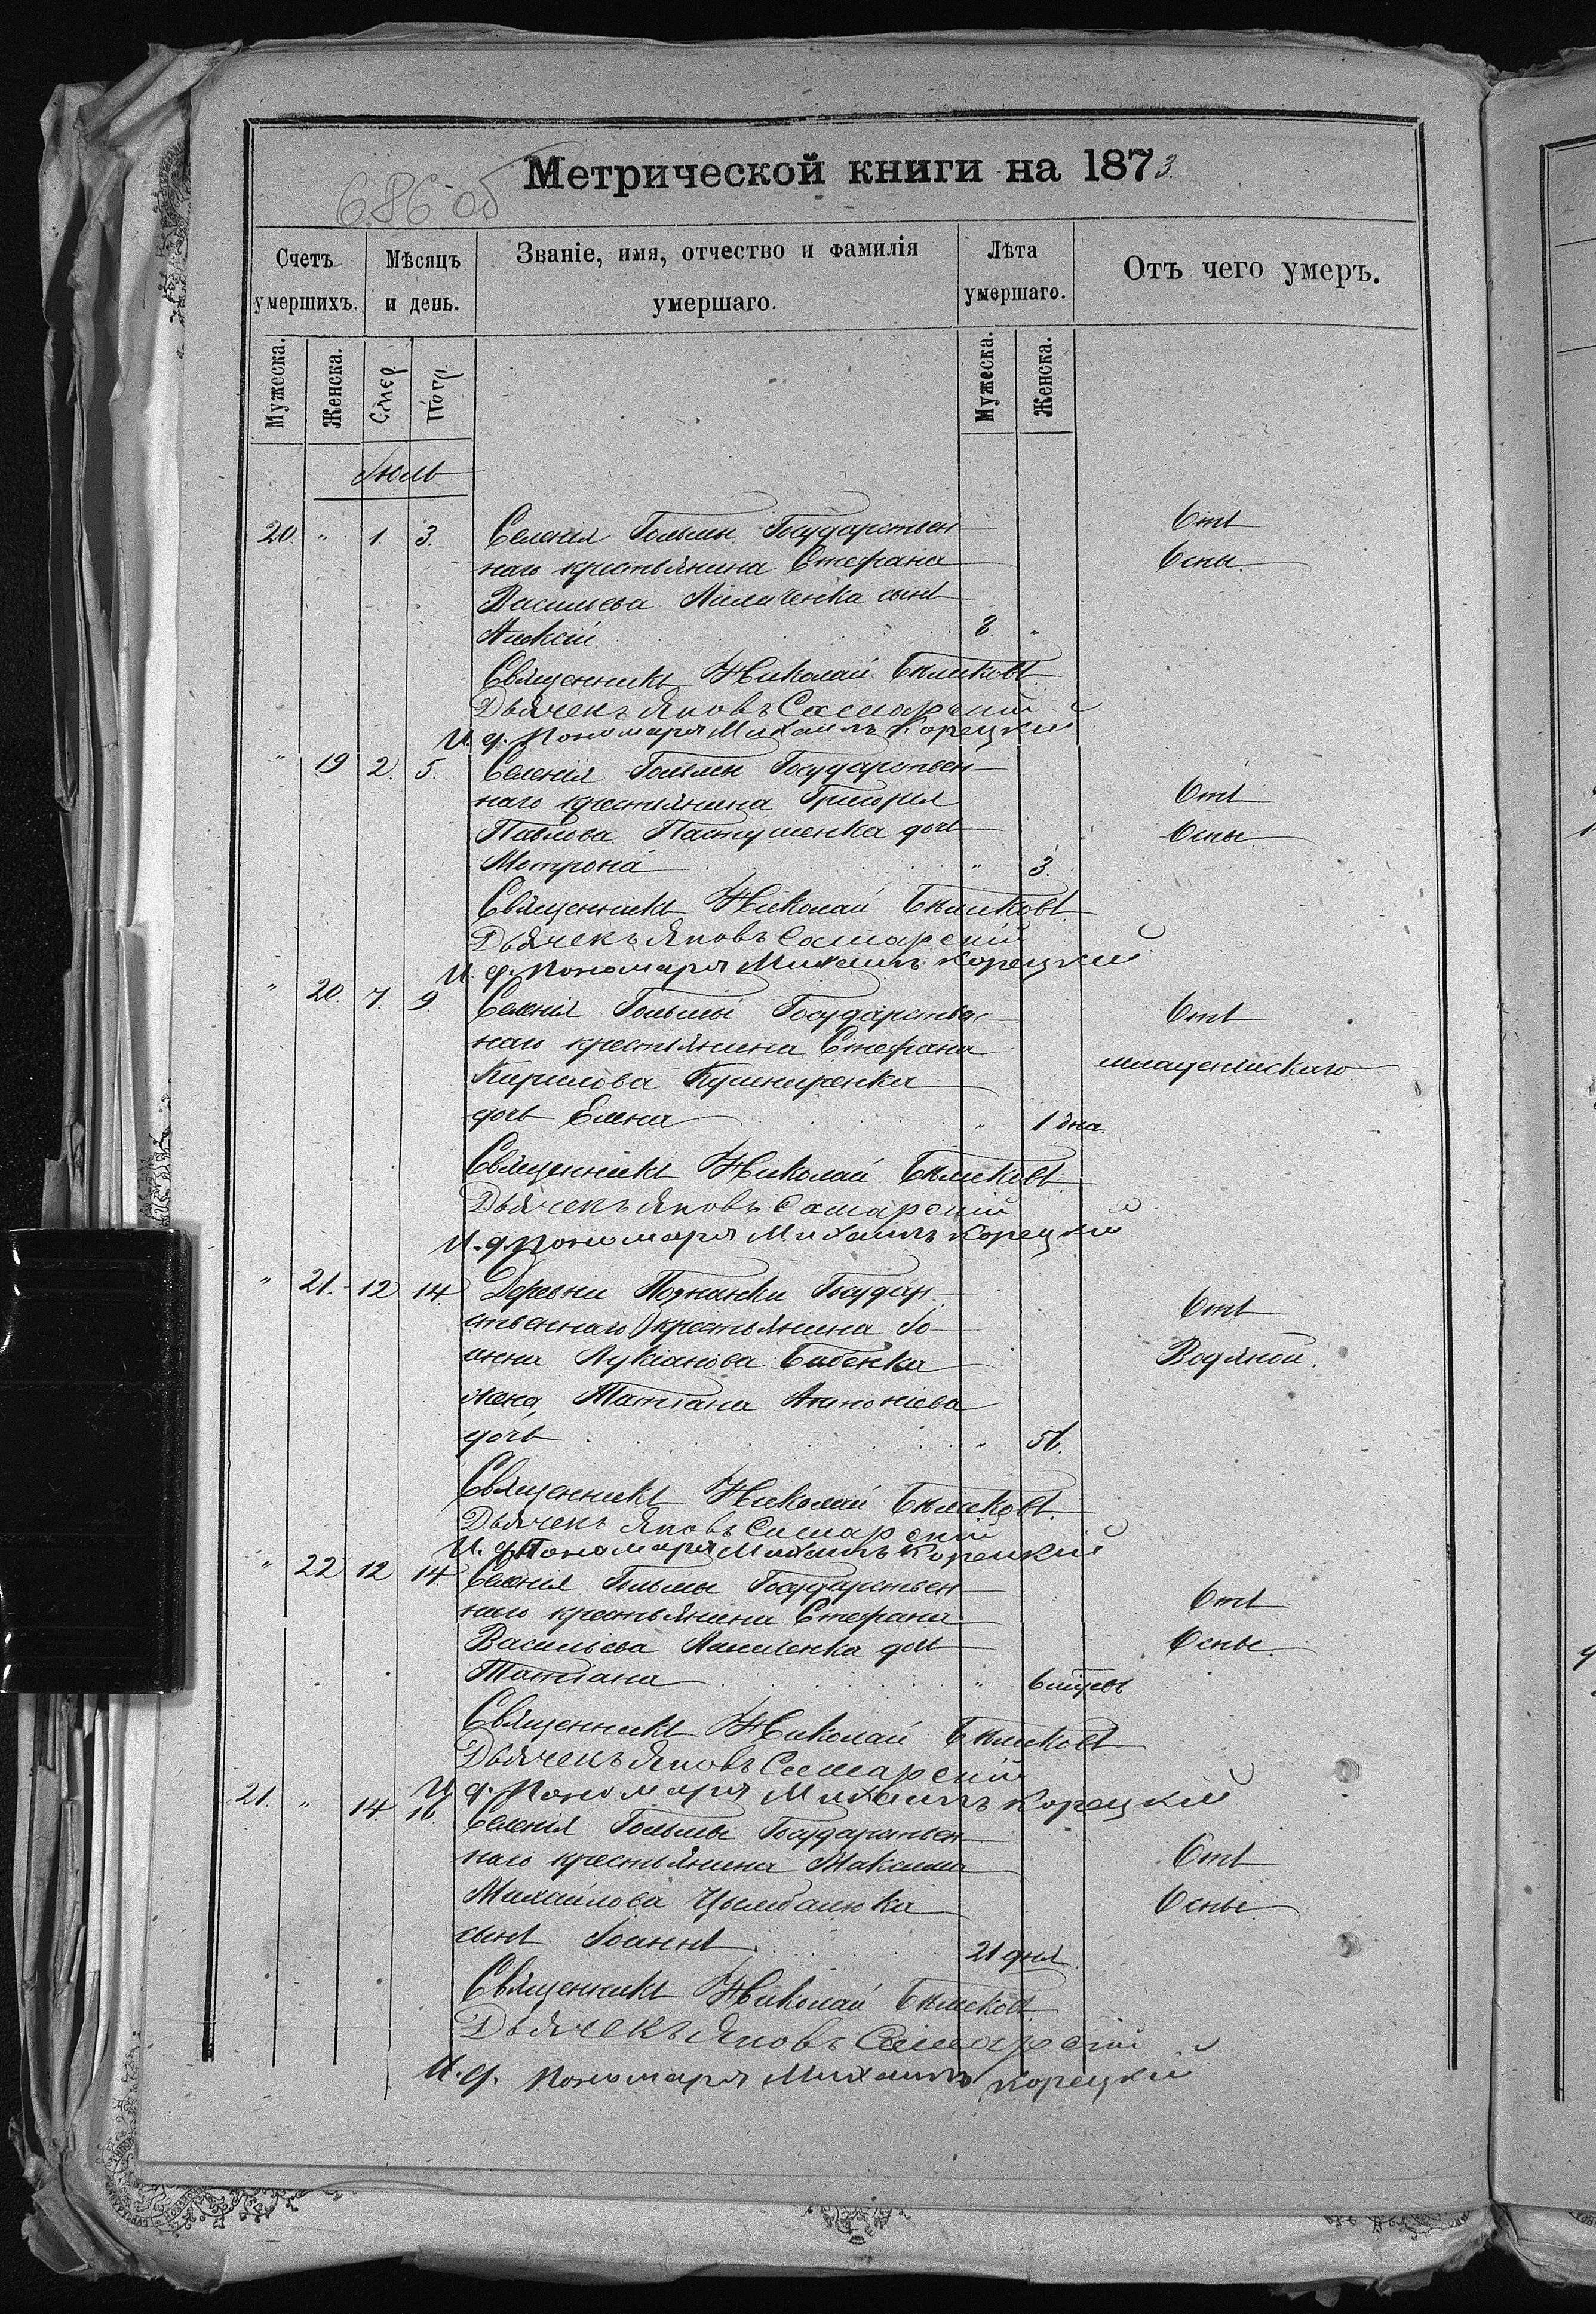 686 об
Метрической книги на 1873.
Счетъ умершихъ.
Мѣсяцъ и день.
Званіе, имя, отчество и фамилія умершаго.
Лѣта умершаго.
Отъ чего умеръ.
Мужеска.
Женска.
Смер
Погр.
Мужеска.
Женска.
Іюль
20. " 1. 3. Селенія Гольмы Государствен Отъ
наго крестьянина Стефана Оспы.
Васильева сынъ
Алексій 8. "
Священникъ Николай Бѣликовъ
Дьячекъ Яковъ Самарскій
И. д. Пономаря Михаилъ Корецкій
" 19 2. 5. Селенія Гольмы Государствен
наго крестьянина Григорія Отъ
Павлова Пастушенка дочь Оспы.
Матрона " 3.
Священникъ Николай Бѣликовъ
Дьячекъ Яковъ Самарскій
И. д. Пономаря Михаилъ Корецкій
" 20. 7. 9. Селенія Гольмы Государствен Отъ
наго крестьянина Стефана
Кирилова Кушниренка младенческаго
дочь Елена " 1 дня.
Священникъ Николай Бѣликовъ
Дьячекъ Яковъ Самарскій
И. д. Пономаря Михаилъ Корецкій
" 21. 12 14. Деревни Познанки Государ
ственнаго крестьянина Іо Отъ
анна Лукіанова Бабенка Водяной.
жена, Татіана Антоніева
дочь "
Священникъ Николай Бѣликовъ.
Дьячекъ Яковъ Самарскій
И. д. Пономаря Михаилъ Корецкій
" 22 12 14. Селенія Гольмы Государствен
наго крестьянина Стефана Отъ
Васильева дочь Оспы.
Татіана " 6 мѣсяцевъ
Священникъ Николай Бѣликовъ
Дьячекъ Яковъ Самарскій
И. д. Пономаря Михаилъ Корецкій
21. " 14 16. Селенія Гольмы Государствен
наго крестьянина Максима Отъ
Михайлова Цымбалюка Оспы.
сынъ Іоаннъ 21 дня.
Священникъ Николай Бѣликовъ
Дьячекъ Яковъ Самарскій
И. д. Пономаря Михаилъ Корецкій